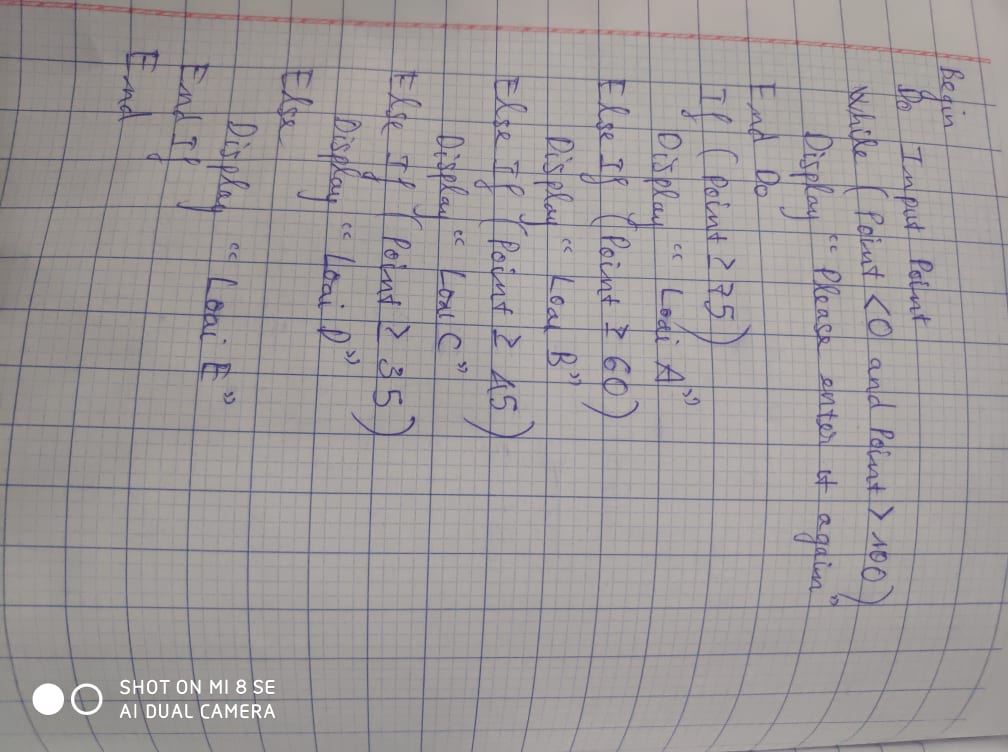 Begin
Do Input Point
While (Point < 0 and Point > 100)
Display "Please enter it again"
End Do
If (Point ≥ 75)
Display "Loai A"
Else If (Point ≥ 60)
Display "Loai B"
Else If (Point ≥ 45)
Display "Loai C"
Else If (Point ≥ 35)
Display "Loai D"
Else
Display "Loai E"
End If
End
SHOT ON MI 8 SE
AI DUAL CAMERA